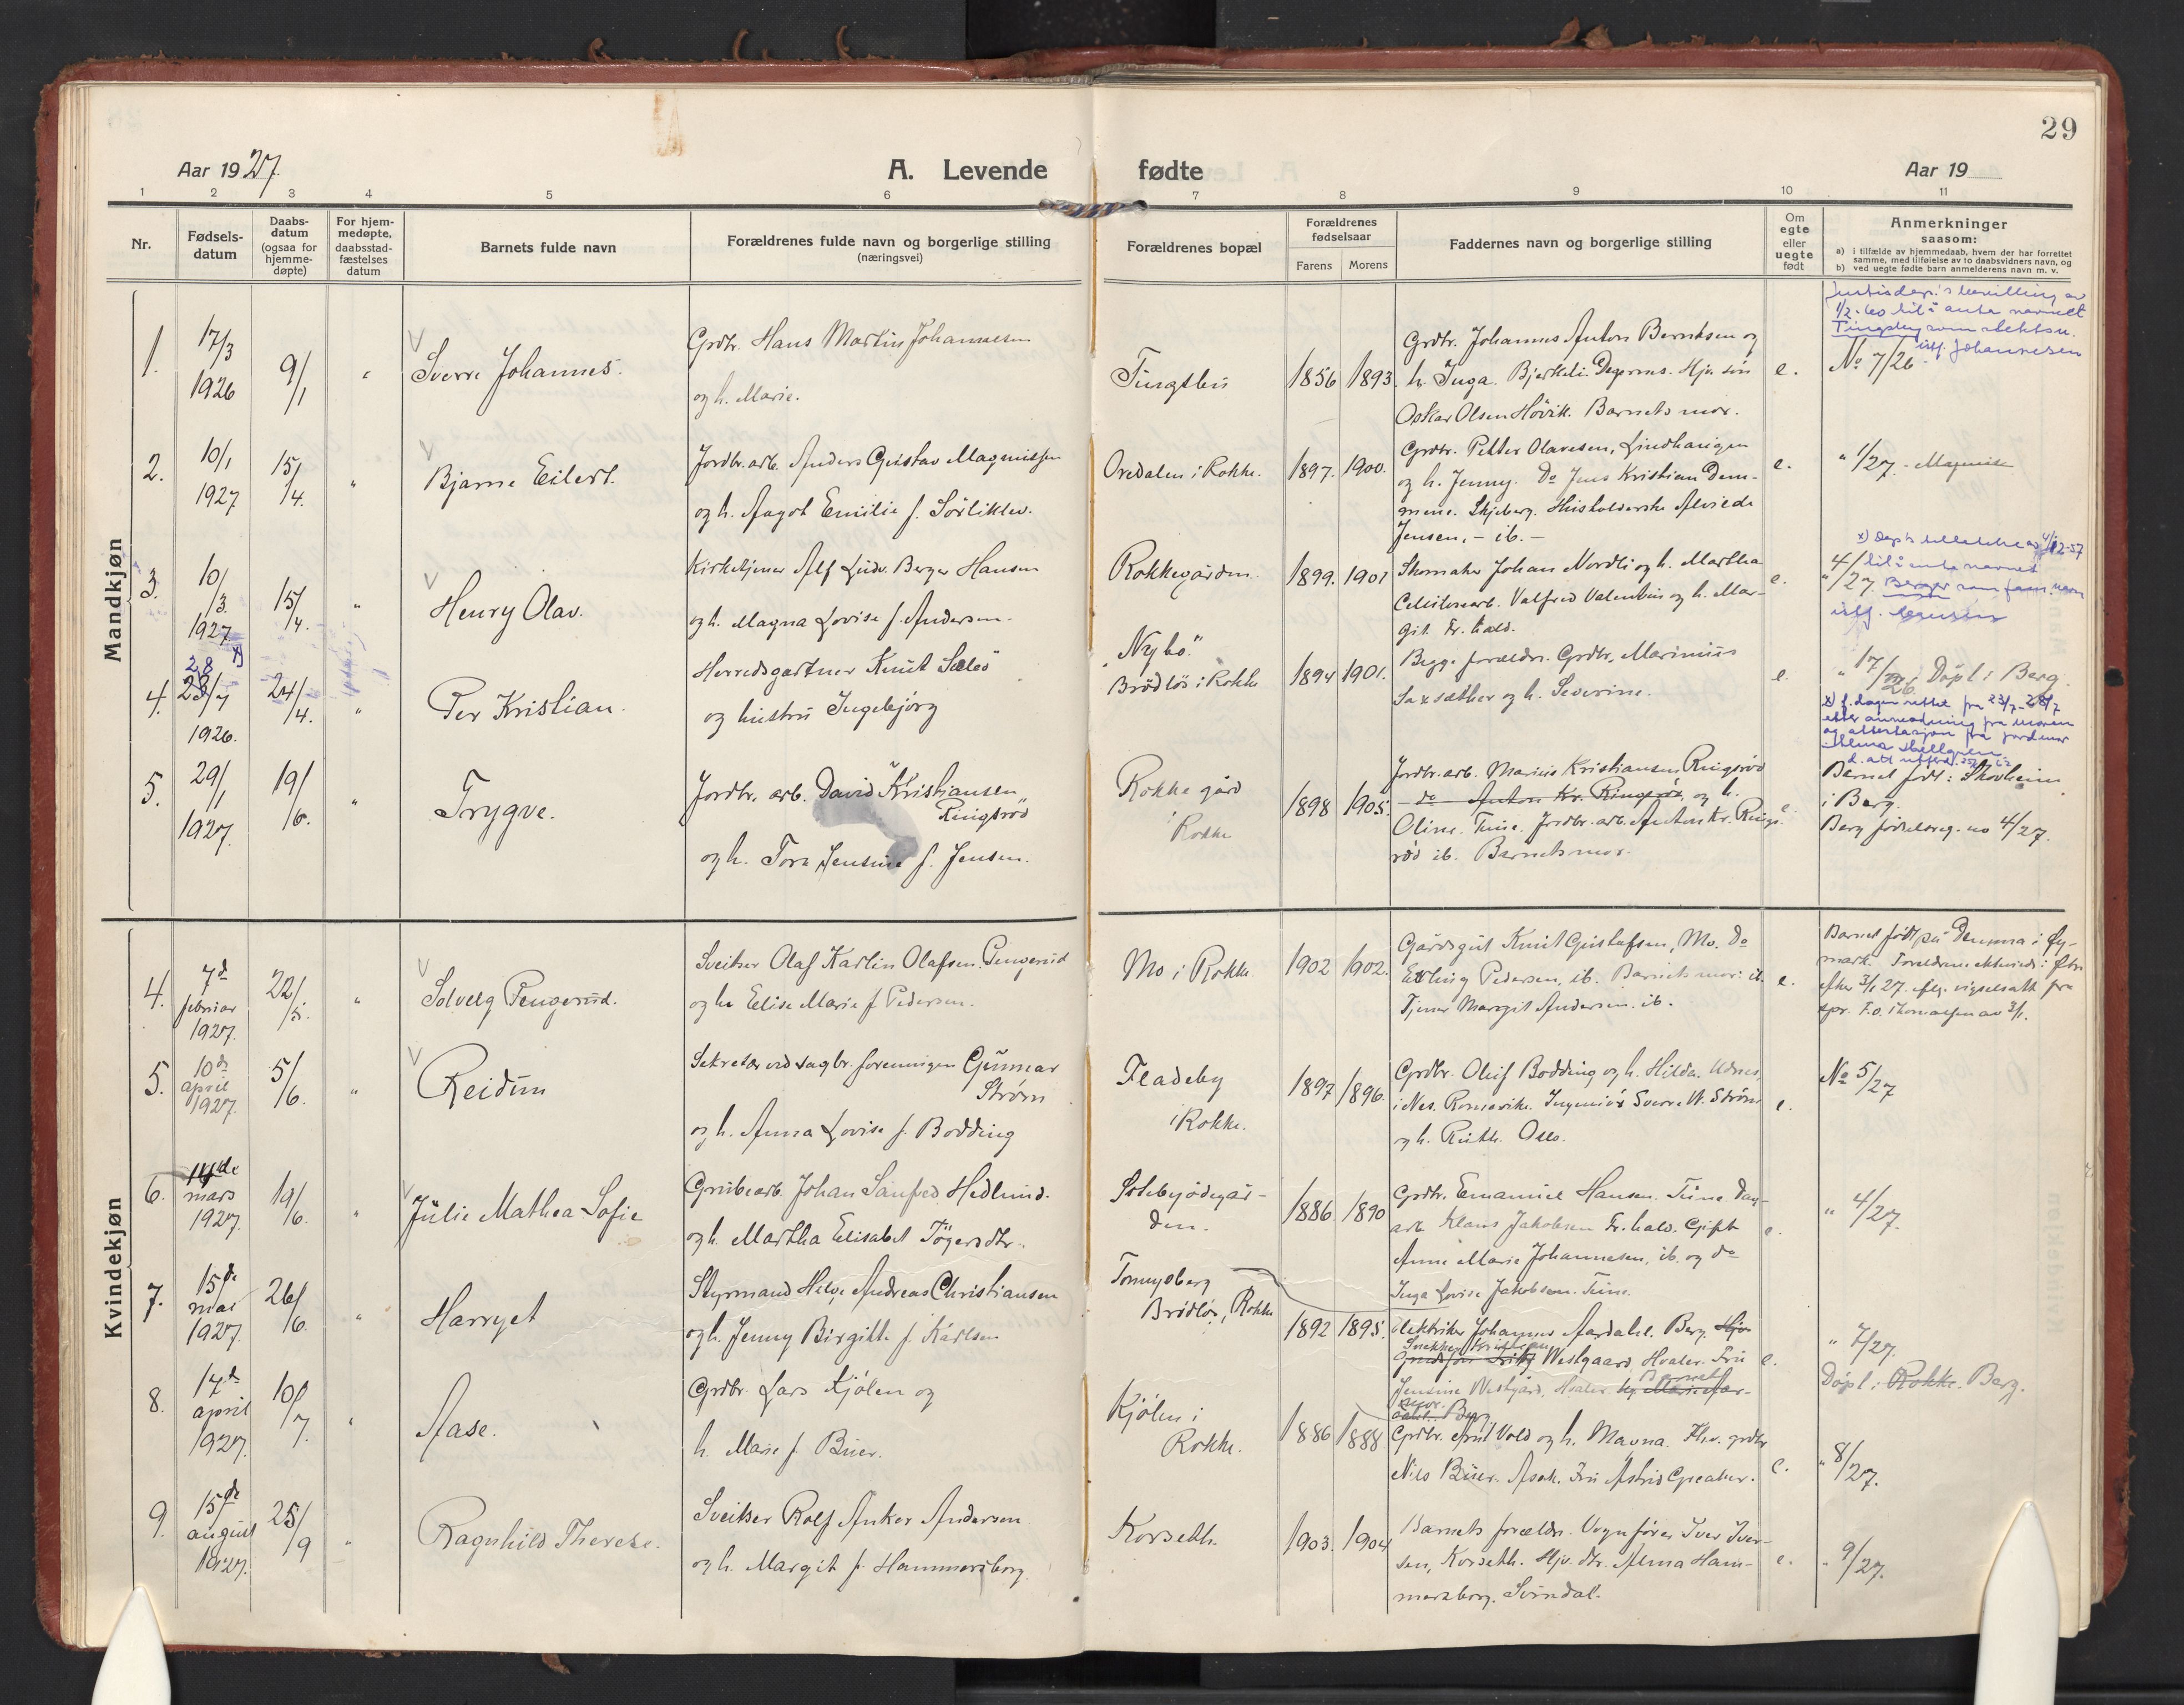 29
Aar 1927.
A. Levende
fødte
Aar 19
1 2 3 4 5 6 7 8 9 10 11
Nr.
Fødsels-
datum
Daabs-
datum
(ogsaa for
hjemme-
døpte)
For hjem-
medøpte,
daabsstad-
fæstelses
datum
Barnets fulde navn
Forældrenes fulde navn og borgerlige stilling
(næringsvei)
Forældrenes bopæl
Forældrenes
fødselsaar
Farens Morens
Faddernes navn og borgerlige stilling
Om
egte
eller
uegte
født
Anmerkninger
saasom:
a) i tilfælde av hjemmedaab, hvem der har forrettet
samme, med tilføielse av to daabsvidners navn, og
b) ved uegte fødte barn anmelderens navn m. v.
Mandkjøn
1. 17/3 1926 9/1 " Sverre Johannes.
Grdbr. Hans Martin Johannesen
og h. Marie.
Tingsbu 1856 1893.
Grdbr. Johannes Anton Berntsen og
h. Inga. Bjerkeli. Degernes. Hjv. søn
Oskar Olsen Høvik. Barnets mor.
e.
1/2-60 til å anta navnet
istf. Johannesen
No 7/26
2. 10/1 1927 15/4. " Bjarne Eilert.
Jordbr. arb. Anders Gustav Magnussen
og h. Aagot Emilie f. Sørliklev.
Oredalen i Rokke. 1897. 1900.
Grdbr. Petter Olavesen, Lindhaugen
og h. Jenny. Do Jens Kristian Dem-
mene. Skjeberg. Husholderske Alvilde
Jensen, - ib. -
e.
" 1/27.
3. 10/3. 1927 15/4. " Henry Olav.
Kirketjener Alf Ludv. Berger Hansen
og h. Magna Lovise f. Andersen.
Rokkegården. 1899. 1901
Skomaker Johan Nordli og h. Martha
Cellulosearb. Valfred Valentin og h. Mar-
git. Fr. hald.
e.
til å anta navnet
Berger som fam. navn
4. 28 23/7 1926. 24/4. " Per Kristian.
Herredsgartner Knut Sælø
og hustru Ingebjørg
"Nybø"
Brødløs i Rokke 1894 1901.
Begge forældre. Grdbr. Marinius
Saxsæther og h. Severine.
e.
" 17/26. Døpt i Berg.
x) f. dagen rettet fra 23/7-28/7
5. 29/1 1927. 19/6. " Trygve.
Jordbr. arb. David Kristiansen
"Ringsrød"
og h. Tora Jensine f. Jensen.
Rokke gård
i Rokke
1898 1905.
Jordbr. arb. Marius Kristiansen Ringsrød
- do Anton Kr. Ringsrød, og h.
Oline. Tune. Jordbr. arb. Anton Kr. Rings-
rød ib. Barnets mor.
e.
Barnet født i Skovheim
i Berg.
Berg fødselsreg. no 4/27.
Kvindekjøn
4. 7de februar 1927. 22/5. " Solveig Pengerud.
Sveitser Olaf Karlin Olafsen Pengerud
og h. Elise Marie f. Pedersen.
Mo i Rokke 1902 1902.
Gårdsgut Knut Gustafsen, Mo. Do
Erling Pedersen, ib. Barnets mor: ib.
Tjener Margit Andersen. ib.
e.
Barnet født på Demma i Øy-
mark.
5. 10de april 1927. 5/6. " Reidun
Sekretær ved sagbr. foreningen Gunnar
Strøm
og h. Anna Lovise f. Bodding
Fladeby
i Rokke. 1897 1896.
Grdbr. Oluf Bodding og h. Hilda. Udnes,
i Nes. Romerike. Ingeniør Sverre W. Strøm
og h. Ruth. Oslo.
e.
No 5/27
6. 14de mars 1927. 19/6. " Julie Mathea Sofie
Grubearb. Johan Sanfred Hedlund.
og h. Martha Elisabet Tøgersdtr.
den. 1886. 1890
Grdbr. Emanuel Hansen. Tune Dag-
arb. Klaus Jakobsen Fr. hald. Gift
Anne Marie Johannesen, ib. og do
Inga Lovise Jakobsen. Tune.
e.
" 4/27.
7. 15de mai 1927. 26/6. " Harryet
Styrmand Helge Andreas Christiansen
og h. Jenny Birgitte f. Karlsen
Tonnysberg
Brødløs, Rokke
1892 1895.
Elektriker Johannes Aardahl. Berg.
Westgaard, Hvaler. Fru
Jensine Westgård, Hvaler. Barnets
mor.
e.
" 7/27.
Døpt i Rokke. Berg.
8. 17de april 1927. 10/7. " Aase.
Grdbr. Lars Kjølen og
h. Marie f. Buer.
Kjølen i
Rokke. 1886 1888
Grdbr. Emil Vold og h. Magna. Fhv. grdbr
Nils Buer. Asak. Fru Astrid Greaker.
e.
" 8/27.
9. 15de august 1927. 25/9 " Ragnhild Therese.
Sveitser Rolf Anker Andersen
og h. Margit f. Hammersborg.
Korseth. 1903. 1904
Barnets forældre. Vognfører Iver Iver-
sen, Korseth. Hjv. dtr. Alma Ham-
mersborg. Svindal.
e.
" 9/27.